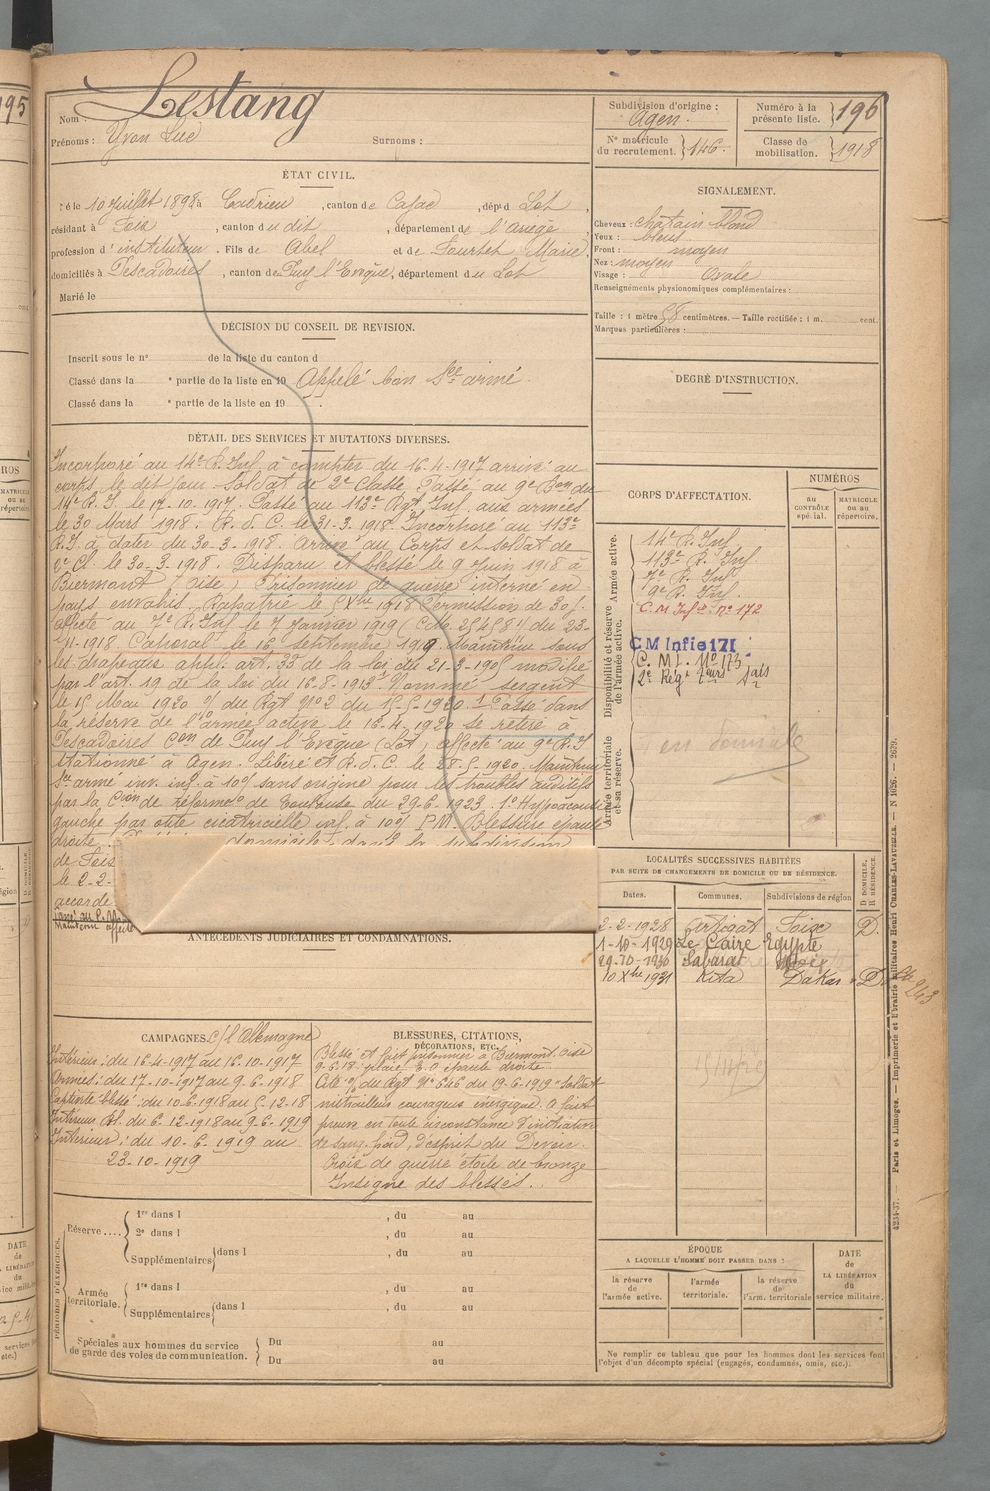 195
Nom : Lestang
Prénoms : Yvon Luc
Surnoms :
Subdivision d'origine :
Agen.
Numéro à la
présente liste. } 196
N° matricule
du recrutement. } 146.
Classe de
mobilisation. } 1918
ÉTAT CIVIL.
Né le 10 juillet 1898 à Cadrieu, canton de Cajac, dépt d Lot,
résidant à Foix, canton du dit, département de l'ariège
profession d'instituteur. Fils de Abel et de Fourbet Marie,
domiciliés à Pescadoires, canton de Puy l'Evêque, département du Lot
Marié le
DÉCISION DU CONSEIL DE REVISION.
Inscrit sous le n° de la liste du canton d
Classé dans la e partie de la liste en 19 Appelé bon Sce armé.
Classé dans la e partie de la liste en 19 .
SIGNALEMENT.
Cheveux : chatain blond
Yeux : bleus
Front : moyen
Nez : moyen
Visage : Ovale
Renseignements physionomiques complémentaires :
Taille : 1 mètre 58 centimètres. — Taille rectifiée : 1 m. cent.
Marques particulières :
DEGRÉ D'INSTRUCTION.
DÉTAIL DES SERVICES ET MUTATIONS DIVERSES.
Incorporé au 14e R. Inf. à compter du 16.4.1917 arrivé au
corps le dit jour Soldat de 2e classe Passé au 9e Bon du
14e R.I. le 17-10-1917. Passé au 113e Rgt Inf. aux armées
le 30 Mars 1918. R. d. C. le 31-3-1918. Incorporé au 113e
R.I. à dater du 30-3-1918. Arrivé au Corps et soldat de
2e Cl. le 30-3-1918. Disparu et blessé le 9 Juin 1918 à
Biermont (Oise) Prisonnier de guerre interné en
pays envahis. Rapatrié le 5 Xbre 1918 Permission de 30 j.
affecté au 7e R. Inf le 7 Janvier 1919 du 23-
11-1918. Caporal le 16 septembre 1919. Maintenu sous
les drapeaux appl. art. 33 de la loi du 21-3-1905 modifié
par l'art. 19 de la loi du 16-8-1913. Nommé sergent
le 15 Mai 1920 du Rgt N° 2 du 15-5-1920. Passé dans
la réserve de l'armée active le 16-4-1920 se retire à
Pescadoires Con de Puy l'Evêque (Lot) affecté au 9e R.I
stationné à Agen. Libéré et R. d. C. le 28-5-1920. Maintenu
Sce armé inv. inf. à 10% sans origine pour les troubles auditifs
par la Con de réforme de Toulouse du 29-6-1923. 1° Hypoacousie
gauche par otite cicatricielle inf. à 10% P.M. Blessure épaule
droite. domicilié dans la subdivision
de Foix
le 2-2-
accorde
CORPS D'AFFECTATION.
NUMÉROS
au
CONTRÔLE
spécial.
MATRICULE
ou au
répertoire.
Disponibilité et réserve Armée active.
de l'armée active.
14e R. Inf.
113e R. Inf
7e R. Inf
9e R. Inf.
C. M. Inf ie n° 172
CM Infie 171
C. M. I. N° 173
Armée territoriale
et sa réserve.
LOCALITÉS SUCCESSIVES HABITÉES
PAR SUITE DE CHANGEMENTS DE DOMICILE OU DE RÉSIDENCE.
D DOMICILE.
R RÉSIDENCE.
Dates. Communes. Subdivisions de région
2-2-1928 Artigat Foix D.
1-10-1929 Le Caire Egypte
29-10-1930 Sabarat Foix
10 Xbre 1931 Kita Dakar D
ANTÉCÉDENTS JUDICIAIRES ET CONDAMNATIONS.
CAMPAGNES c/ l'Allemagne
Intérieur : du 16-4-1917 au 16-10-1917
Armées : du 17-10-1917 au 9-6-1918
Captivité blessé : du 10-6-1918 au 5-12-18
Intérieur Bl. du 6-12-1918 au 9-6-1919
Intérieur : du 10-6-1919 au
23-10-1919
BLESSURES, CITATIONS,
DÉCORATIONS, ETC.
Blessé et fait prisonnier à Biermont Oise
9-6-18 plaie E.O épaule droite
Cité du Rgt N° 646 du 19-6-1919 "Soldat
mitrailleur courageux énergique. A fait
preuve en toute circonstance d'initiative
de sang-froid, d'esprit du Devoir.
Croix de guerre étoile de bronze
Insigne des blessés.
PÉRIODES D'EXERCICES.
Réserve ....
1re dans l , du au
2e dans l , du au
Supplémentaires {dans l , du au
Armée
territoriale.
1re dans l , du au
Supplémentaires {dans l , du au
Spéciales aux hommes du service
de garde des voies de communication.
Du au
Du au
ÉPOQUE
A LAQUELLE L'HOMME DOIT PASSER DANS :
la réserve
de l'armée active.
l'armée
territoriale.
la réserve de
l'arm. territoriale
DATE
de
LA LIBÉRATION
du
service militaire.
Ne remplir ce tableau que pour les hommes dont les services font
l'objet d'un décompte spécial (engagés, condamnés, omis, etc.).
4234-37. Paris et Limoges. — Imprimerie et Librairie militaires Henri CHARLES-LAVAUZELLE. — N 1026. — 2679.